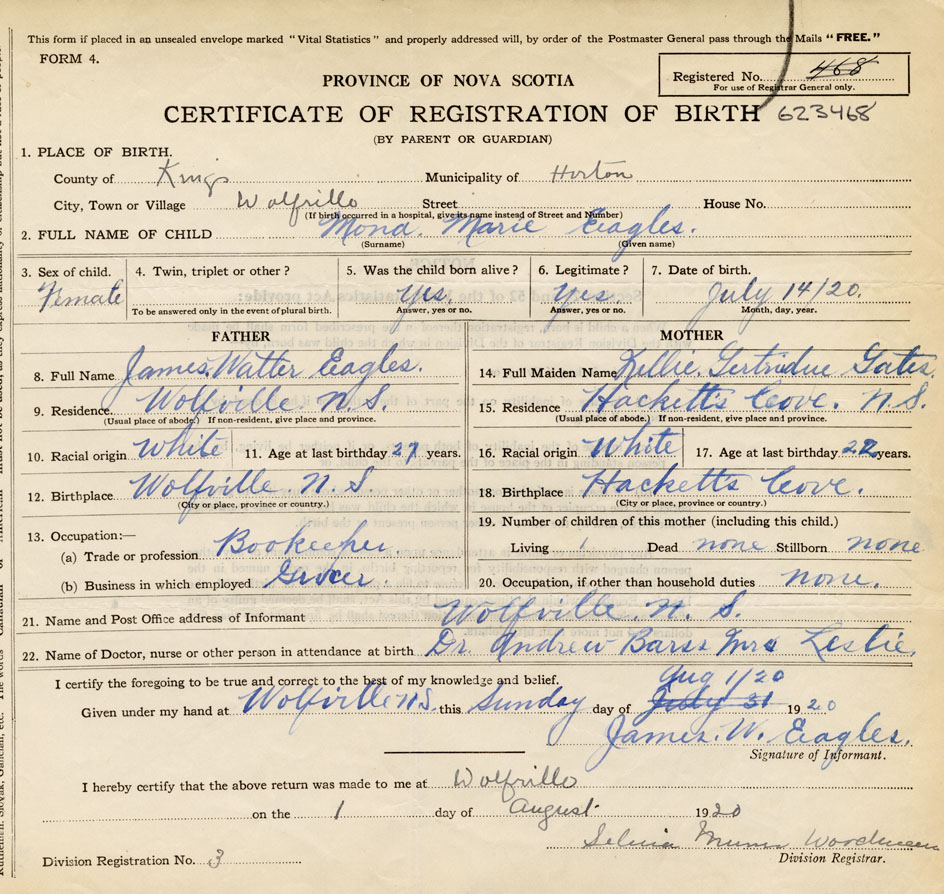 This form if placed in an unsealed envelope marked "Vital Statistics" and properly addressed will, by order of the Postmaster General pass through the Mails "FREE."
FORM 4.
Registered No. 468
For use of Registrar General only.
PROVINCE OF NOVA SCOTIA
CERTIFICATE OF REGISTRATION OF BIRTH 623468
(BY PARENT OR GUARDIAN)
1. PLACE OF BIRTH.
County of Kings Municipality of Horton
City, Town or Village Wolfville Street House No.
(If birth occurred in a hospital, give its name instead of Street and Number)
2. FULL NAME OF CHILD Mona. Marie Eagles.
(Surname) (Given name)
3. Sex of child. 4. Twin, triplet or other? 5. Was the child born alive? 6. Legitimate? 7. Date of birth.
Female Yes. Yes July 14/20.
To be answered only in the event of plural birth. Answer, yes or no. Answer, yes or no. Month, day, year.
FATHER MOTHER
8. Full Name James. Watter Eagles. 14. Full Maiden Name Nellie. Gertridue Gates.
9. Residence. Wolfville. N.S. 15. Residence Hacketts Cove. N.S.
(Usual place of abode.) If non-resident, give place and province. (Usual place of abode.) If non-resident, give place and province.
10. Racial origin White 11. Age at last birthday 27 years. 16. Racial origin White 17. Age at last birthday 22 years.
12. Birthplace Wolfville. N.S 18. Birthplace Hacketts Cove.
(City or place, province or country.) (City or place, province or country.)
13. Occupation:— 19. Number of children of this mother (including this child.)
(a) Trade or profession Bookeeper Living 1 Dead none Stillborn none
(b) Business in which employed Grocer. 20. Occupation, if other than household duties none.
21. Name and Post Office address of Informant Wolfville. N. S.
22. Name of Doctor, nurse or other person in attendance at birth Dr. Andrew Barss Mrs Leslie.
I certify the foregoing to be true and correct to the best of my knowledge and belief. Aug 1/20
Given under my hand at Wolfville N.S. this Sunday day of July 31 1920
James. W. Eagles.
Signature of Informant.
I hereby certify that the above return was made to me at Wolfville
on the 1 day of August 1920
Division Registration No. 3 Division Registrar.